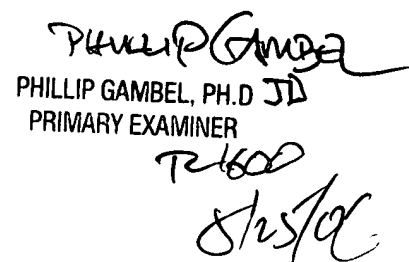 PHILLIP GAMBEL
PHILLIP GAMBEL, PH.D JD
PRIMARY EXAMINER
TC1600